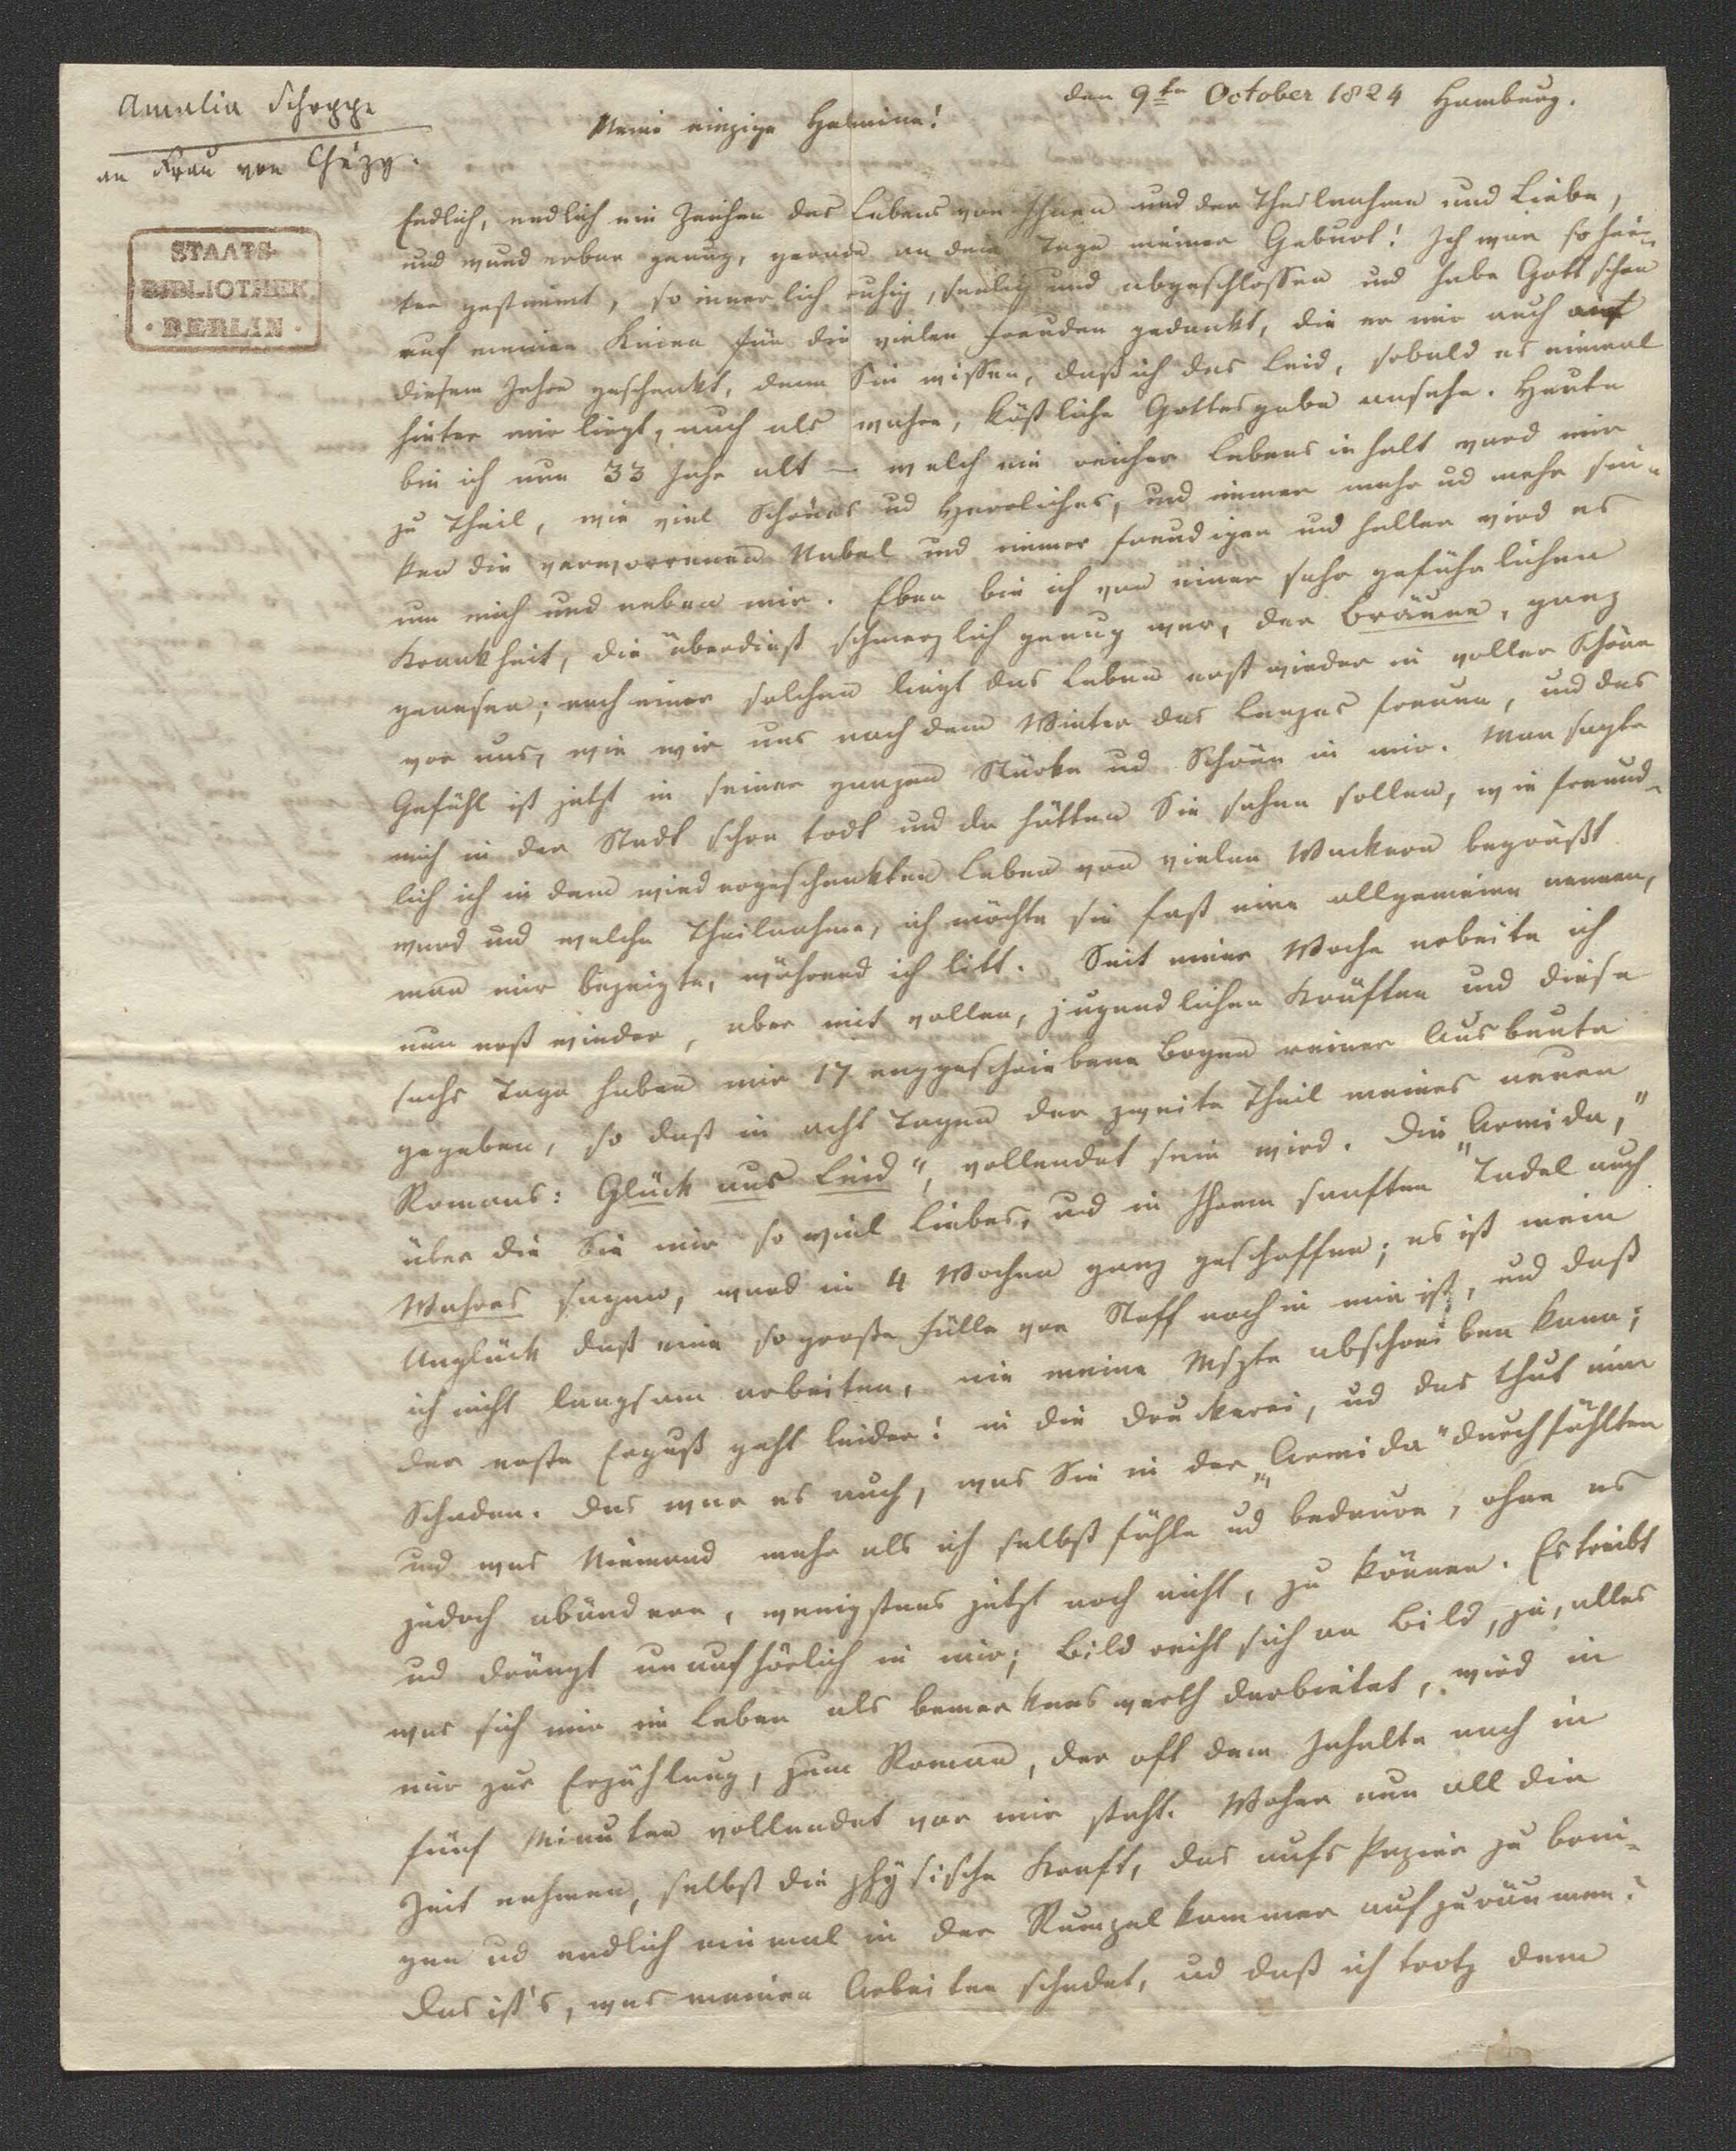 Amalia Schoppe
an Frau von Chézy.
STAATS-
BIBLIOTHEK
· BERLIN ·
den 9ten October 1824 Hamburg.
Meine einzige Helmina!
Endlich, endlich ein Zeichen des Lebens von Ihnen und der Theilnahme und Liebe,
und wunderbar genug, gerade an dem Tage meiner Geburt! Ich war so hei-
ter gestimmt, so innerlich ruhig, seelig und abgeschlossen und habe Gott schon
auf meinen Knien für die vielen Freuden gedankt, die er mir auch
diesem Jahre geschenkt, denn Sie wissen, daß ich das Leid, sobald es einmal
hinter mir liegt, auch als wahre, köstliche Gottesgabe ansehe. Heute
bin ich nun 33 Jahr alt – welch ein reicher Lebensinhalt ward mir
zu Theil, wie viel Schönes ud Herrliches, und immer mehr ud mehr sin-
ken die verworrenen Nebel und immer freudiger und heller wird es
um mich und neben mir. Eben bin ich von einer sehr gefährlichen
Krankheit, die überdieß schmerzlich genug war, der Bräune, ganz
genesen; nach einer solchen liegt das Leben erst wieder in voller Schöne
vor uns, wie wir uns nach dem Winter des Lenzes freuen, und das
Gefühl ist jetzt in seiner ganzen Stärke ud Schöne in mir. Man sagte
mich in der Stadt schon todt und da hätten Sie sehen sollen, wie freund-
lich ich in dem wiedergeschenkten Leben von vielen Wackern begrüßt
ward und welche Theilnahme, ich möchte sie fast eine allgemeine nennen,
man mir bezeigte, während ich litt. Seit einer Woche arbeite ich
nun erst wieder, aber mit vollen, jugendlichen Kräften und diese
sechs Tage haben mir 17 enggeschriebene Bogen reiner Ausbeute
gegeben, so daß in acht Tagen der zweite Theil meines neuen
Romans: Glück aus Leid", vollendet sein wird. Die „Armida,"
über die Sie mir so viel Liebes, und in Ihrem sanften Tadel auch
Wahres sagen, ward in 4 Wochen ganz geschaffen; es ist mein
Unglück daß eine so große Fülle von Stoff noch in mir ist, und daß
ich nicht langsam arbeiten, nie meine Mspte abschreiben kann;
der erste Erguß geht leider! in die Druckerei, ud das thut mir
Schaden. Das war es auch, was Sie in der „Armida" durchfühlten
und was Niemand mehr als ich selbst fühle ud bedaure, ohne es
jedoch abändern, wenigstens jetzt noch nicht, zu können. Es treibt
ud drängt unaufhörlich in mir; Bild reiht sich an Bild, ja, alles
was sich mir im Leben als bemerkenswerth darbietet, wird in
mir zur Erzählung, zum Roman, der oft dem Inhalte nach in
fünf Minuten vollendet vor mir steht. Woher nun all die
Zeit nehmen, selbst die physische Kraft, das aufs Papier zu brin-
gen ud endlich einmal in der Rumpelkammer aufzuräumen?
Das ist's, was meinen Arbeiten schadet, ud daß ich trotz dem